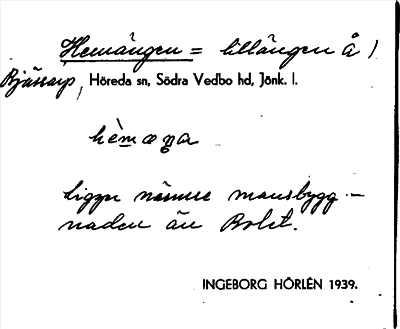 Hemängen = lillängen Å /
Bjässarp, Höreda sn, Södra Vedbo hd, Jönk. l.
hèmæŋa
Ligger närmre mansbygg-
naden än Bolet.
INGEBORG HÖRLÉN 1939.